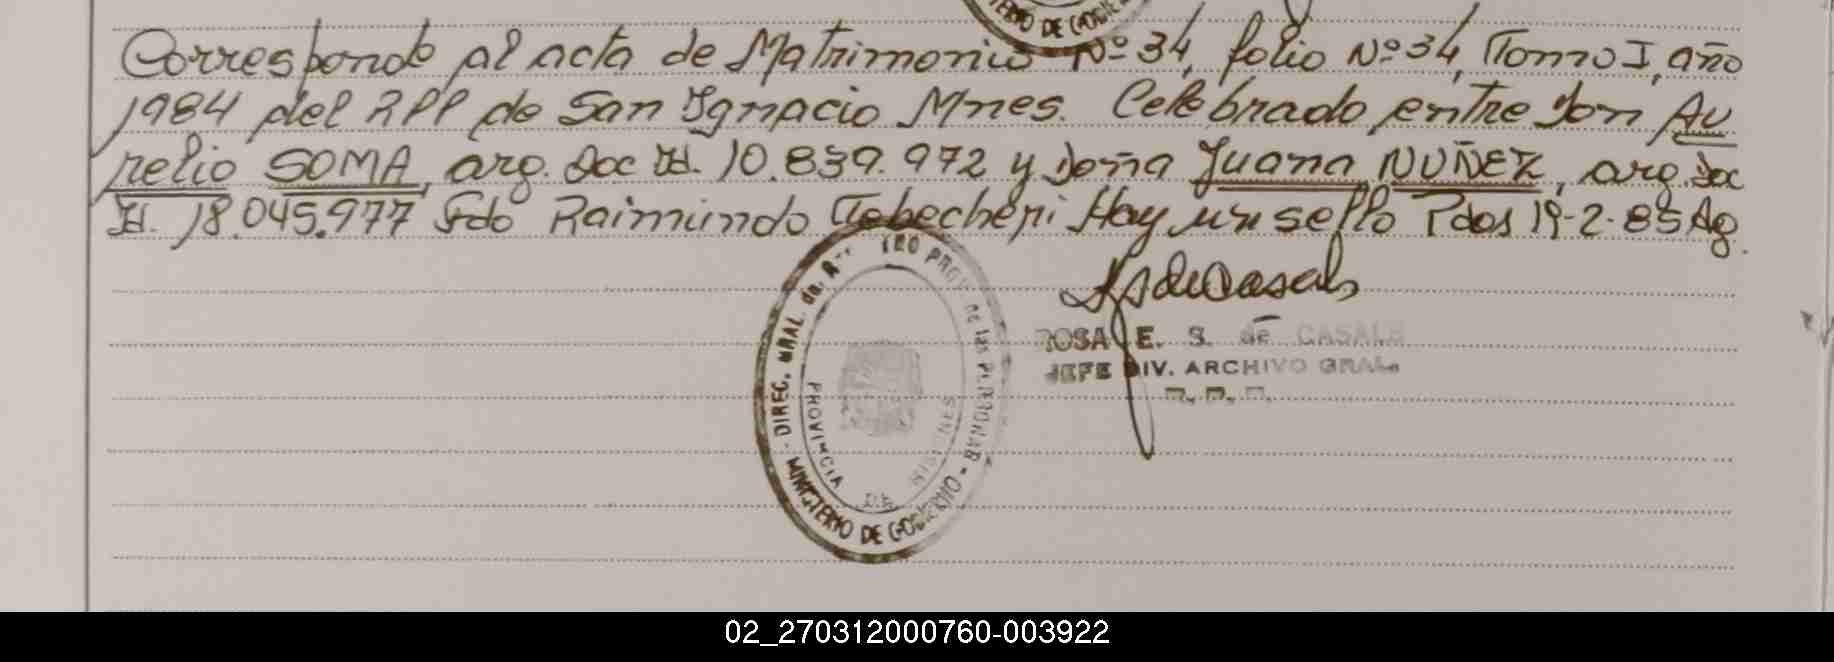 TERIO DE GOBIE
Corresponde al acta de Matrimonio Nº 34, folio Nº 34, Tomo I, año
1984 del RPP de San Ignacio Mnes. Celebrado entre don Au
relio SOMA, arg. Doc Id. 10.839.972 y doña Juana NUÑEZ, arg. Doc
Id. 18.045.977 Fdo Raimundo Tebecheri Hay un sello Pdas 19-2-85 Ag.
ROSA E. S. de CASALS
JEFE DIV. ARCHIVO GRAL.
R. P. P.
DIREC. GRAL. de. PROV. de las PERSONAS
PROVINCIA DE MISIONES
MINISTERIO DE GOBIERNO
02_270312000760-003922